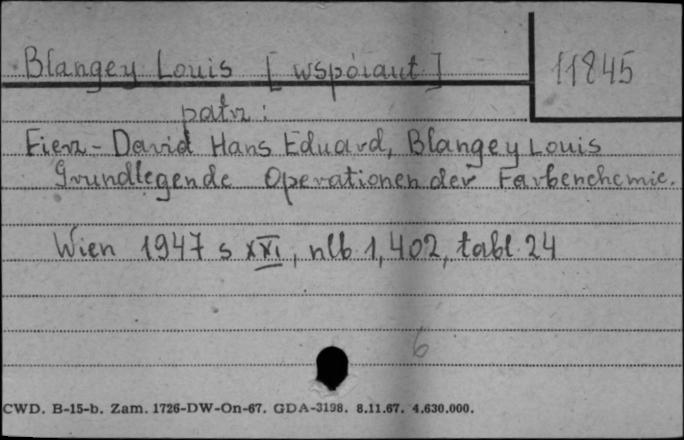 Blangey Louis [współaut]
11845
patrz:
Fierz-David Hans Eduard, Blangey Louis
Grundlegende Operationen der Farbenchemie.
Wien 1947 s XXI, nlb 1, 402, tabl. 24
6
CWD. B-15-b. Zam. 1726-DW-On-67. GDA-3198. 8.11.67. 4.630.000.